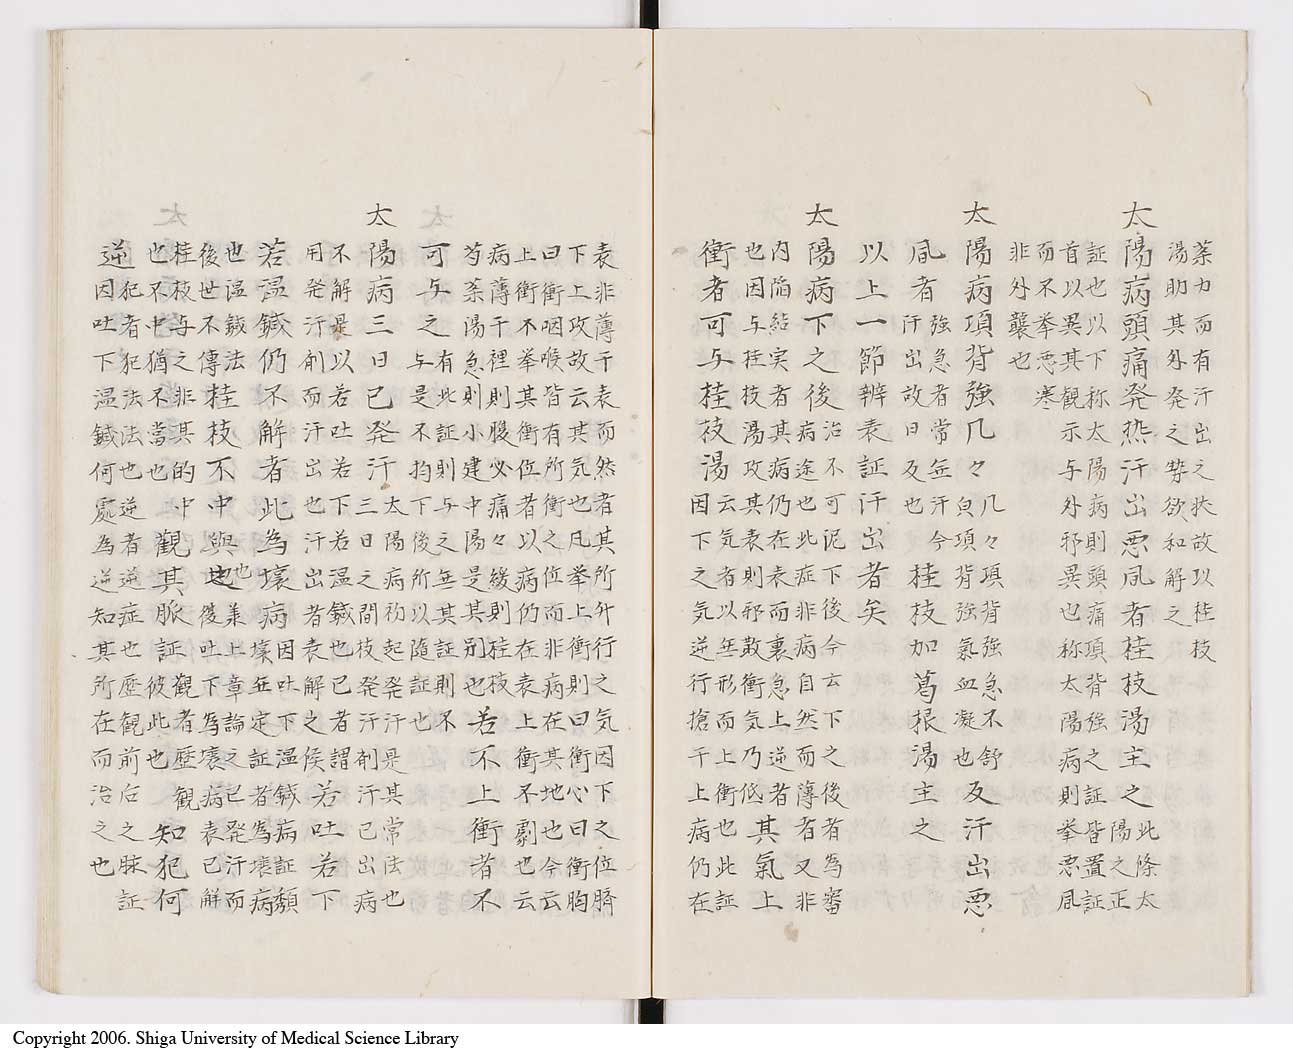 薬力而有汗出之状故以桂枝
湯助其外発之勢欲和解之
太陽病頭痛発热汗出悪風者桂枝湯主之
此條太
陽之正
証也以下称太陽病則頭痛項背強之証皆置証
首以異其観示与外邪異也称太陽病則挙悪風
而不挙悪寒
非外襲也
太陽病項背強几々
几々項背強急不舒
貟項背強氣血凝也
及汗出悪
風者
強急者常無汗今
汗出故曰及也
桂枝加葛根湯主之
以上一節辨表証汗出者矣
太陽病下之後
治不可泥下後今云下之後者為審
病途也此症非病自然而薄者又非
内陥結実者其病仍在表而裏急上逆者
也因与桂枝湯攻其表則邪散衝気乃低
其氣上
衝者可与桂枝湯
云気者以無形而上衝也此証
因下之気逆行搶于上病仍在
表非薄于表而然者其所升行之気因下之位臍
下上攻故云其気也凡挙上衝則曰衝心曰衝胸
曰衝咽喉皆有所衝之位而非病在其地也今云
上衝不挙其衝位者以病仍在表上衝不劇也云
病薄于裡則腹必痛々緩則桂枝
芍薬湯急則小建中湯是其別也
若不上衝者不
可与之
有此証則与之無其証則不
与是不拘下後所以随証也
太陽病三日已発汗
太陽病初起発汗是其常法也
三日之間枝発汗剤汗已出病
不解是以若吐若下若温鍼也已者謂
用発汗剤而汗出也汗出者表解之候
若吐若下
若温鍼仍不解者此為壊病
因吐下温鍼病証頽
壊無定証者為壊病
也温鍼法
後世不傳
桂枝不中與也
也義上章論之已発汗而
後吐下為壊病表已解
桂枝与之非其的中
也不中猶不當也
觀其脈証
觀者歴觀
彼此也
知犯何
逆
犯者犯法也逆者逆症也歴観前后之脉証
因吐下温鍼何處為逆知其所在而治之也
Copyright 2006. Shiga University of Medical Science Library